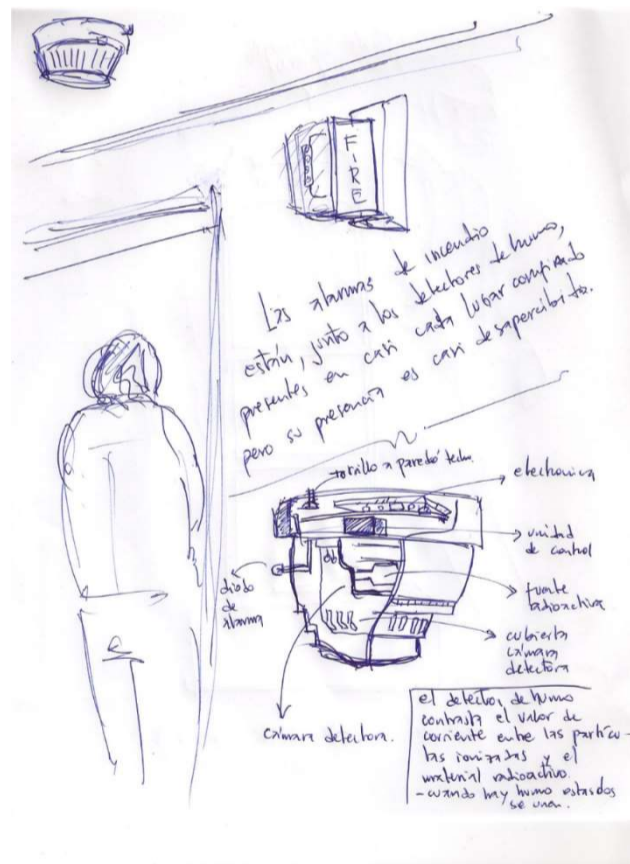 FIRE
Las alarmas de incendio
están, junto a los detectores de humo,
presentes en casi cada lugar confinado
pero su presencia es casi desapercibida.
tornillo a pared ó techo
electronica
unidad
de control
fuente
radioactiva
cubierta
cámara
detectora
diodo
de
alarma
cámara detectora.
el detector de humo
contrasta el valor de
corriente entre las partícu-
las ionizadas y el
material radioactivo.
- cuando hay humo estas dos
se unen.